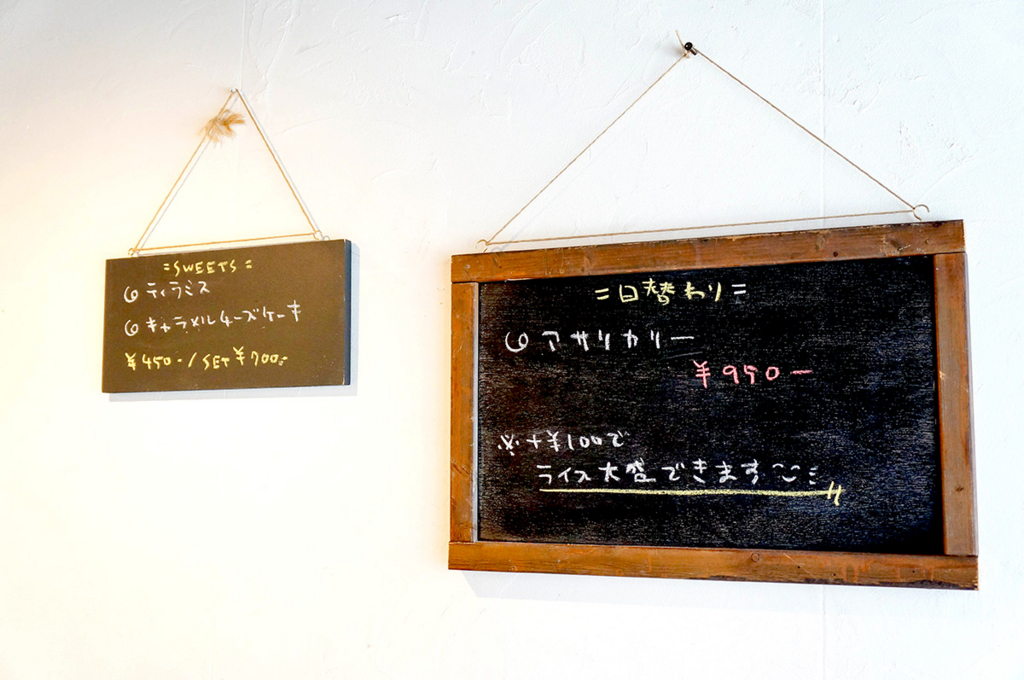 =SWEETS=
ティラミス
キャラメルチーズケーキ
¥450-/SET¥700-
=日替わり=
アサリカリー
¥950-
※+¥100で
ライス大盛できます